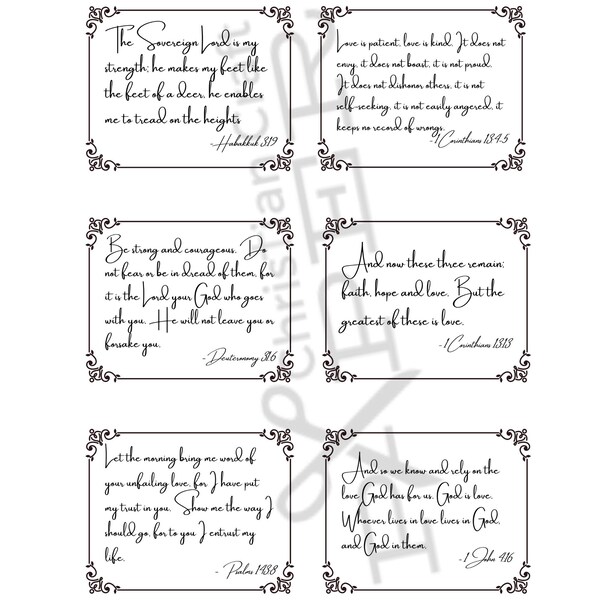 The Sovereign Lord is my
strength; he makes my feet like
the feet of a deer, he enables
me to tread on the heights
-Habakkuk 3:19
Love is patient, love is kind. It does not
envy, it does not boast, it is not proud.
It does not dishonor others, it is not
self-seeking, it is not easily angered, it
keeps no record of wrongs.
-1 Corinthians 13:4-5
Be strong and courageous. Do
not fear or be in dread of them, for
it is the Lord your God who goes
with you. He will not leave you or
forsake you.
- Deuteronomy 31:6
And now these three remain:
faith, hope and love. But the
greatest of these is love.
-1 Corinthians 13:13
Let the morning bring me word of
your unfailing love, for I have put
my trust in you. Show me the way I
should go, for to you I entrust my
life.
- Psalms 143:8
And so we know and rely on the
love God has for us. God is love.
Whoever lives in love lives in God,
and God in them.
-1 John 4:16
Christian Craft